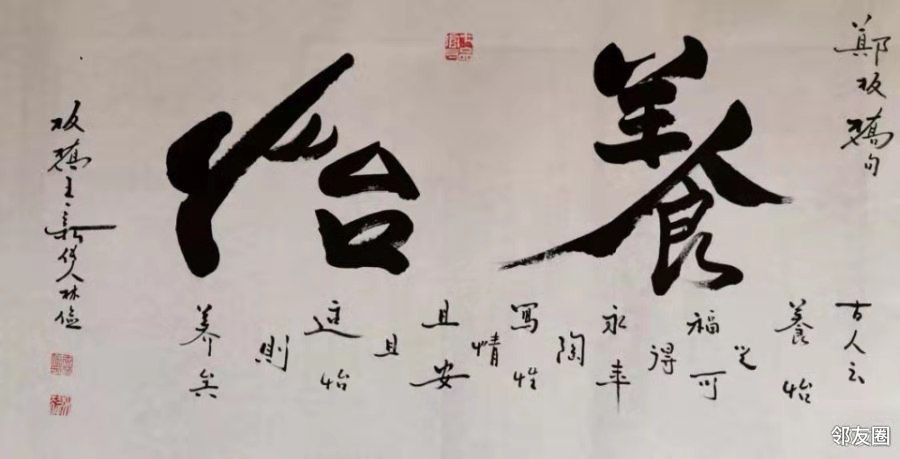 鄭板橋句
養怡
古人云
養怡
之
福可
得
永年
陶
寫性
情
且安
且
進怡
則
養矣
板橋 人林
邻友圈